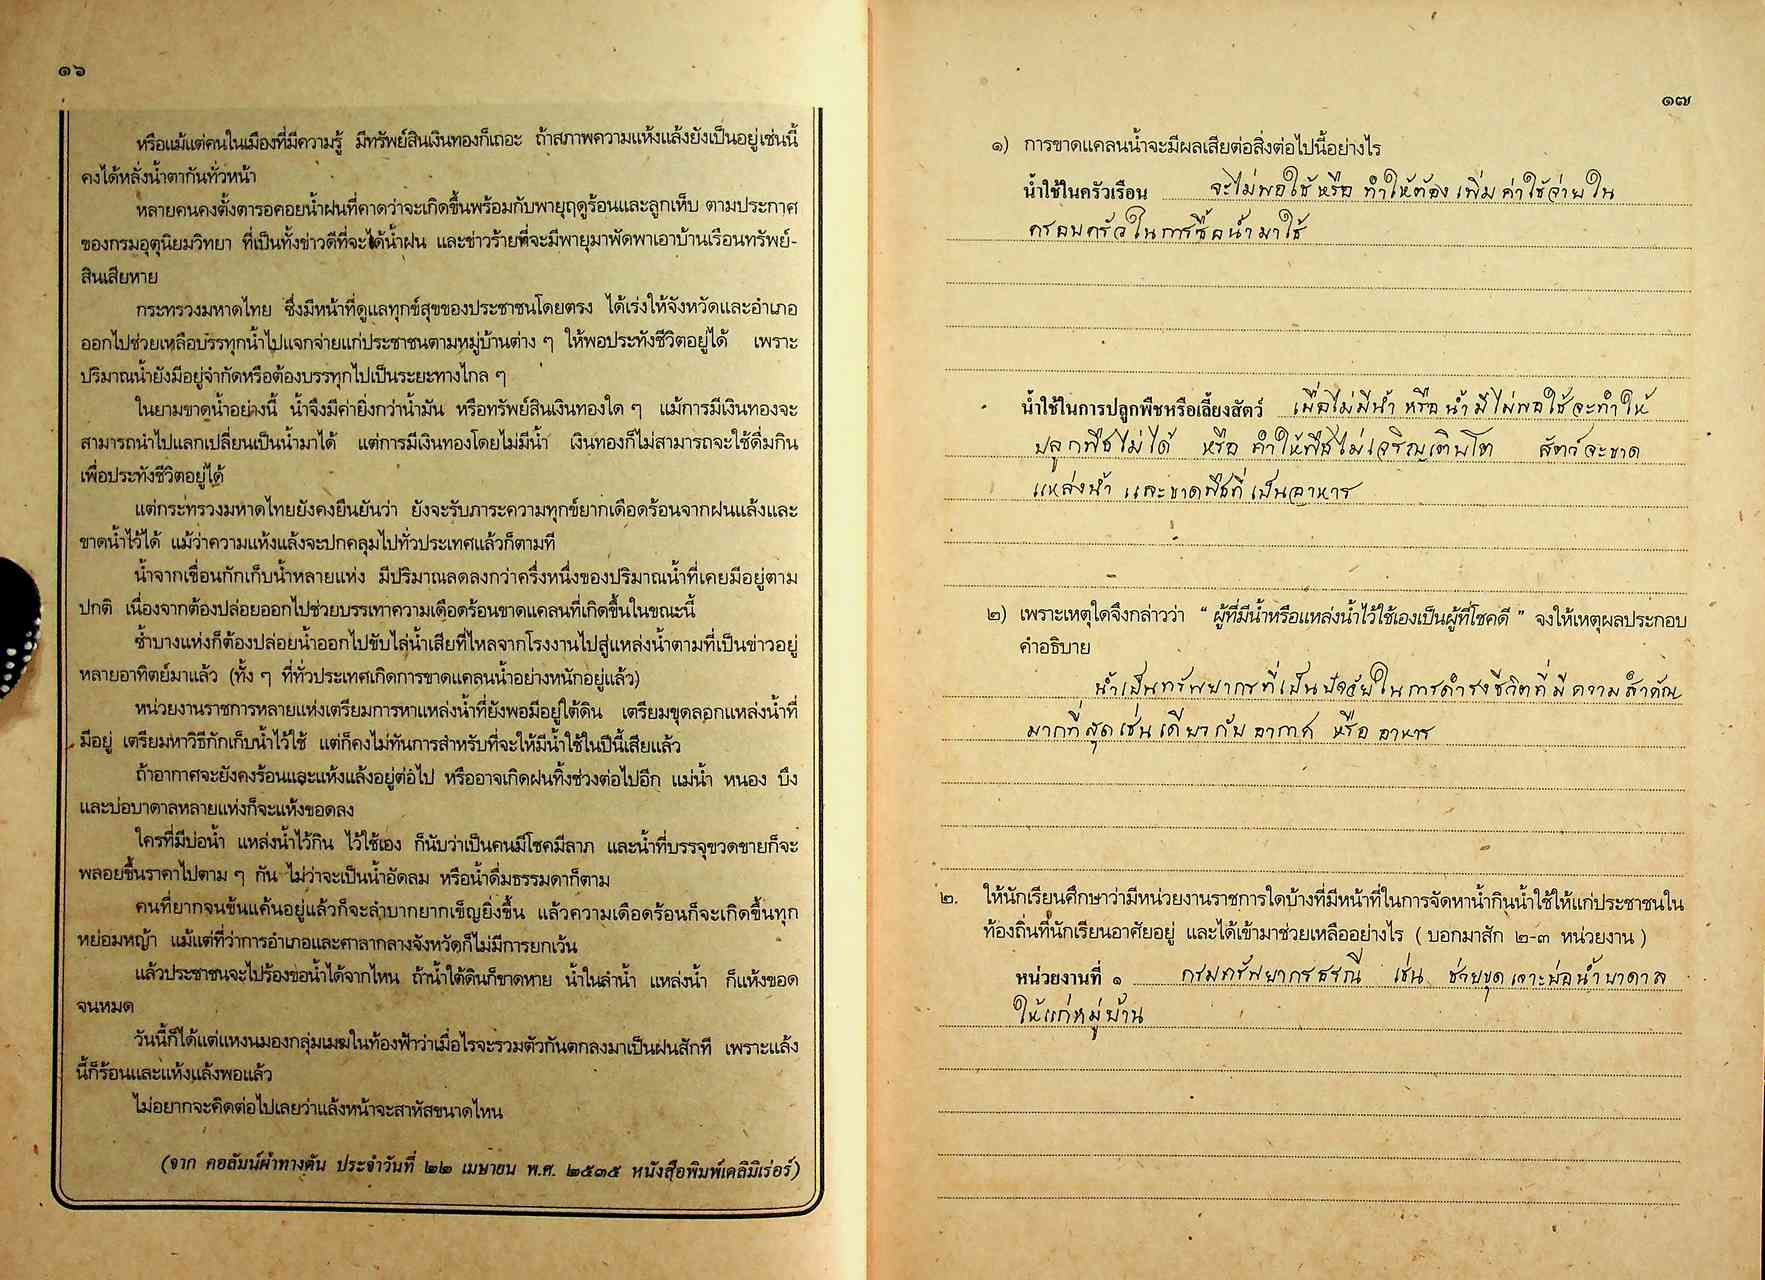 ๑๖
หรือแม้แต่คนในเมืองที่มีความรู้ มีทรัพย์สินเงินทองก็เถอะ ถ้าสภาพความแห้งแล้งยังเป็นอยู่เช่นนี้
คงได้หลั่งน้ำตากันทั่วหน้า
หลายคนคงตั้งตารอคอยน้ำฝนที่คาดว่าจะเกิดขึ้นพร้อมกับพายุฤดูร้อนและลูกเห็บ ตามประกาศ
ของกรมอุตุนิยมวิทยา ที่เป็นทั้งข่าวดีที่จะได้น้ำฝน และข่าวร้ายที่จะมีพายุมาพัดพาเอาบ้านเรือนทรัพย์-
สินเสียหาย
กระทรวงมหาดไทย ซึ่งมีหน้าที่ดูแลทุกข์สุขของประชาชนโดยตรง ได้เร่งให้จังหวัดและอำเภอ
ออกไปช่วยเหลือบรรทุกน้ำไปแจกจ่ายแก่ประชาชนตามหมู่บ้านต่าง ๆ ให้พอประทังชีวิตอยู่ได้ เพราะ
ปริมาณน้ำยังมีอยู่จำกัดหรือต้องบรรทุกไปเป็นระยะทางไกล ๆ
ในยามขาดน้ำอย่างนี้ น้ำจึงมีค่ายิ่งกว่าน้ำมัน หรือทรัพย์สินเงินทองใด ๆ แม้การมีเงินทองจะ
สามารถนำไปแลกเปลี่ยนเป็นน้ำมาได้ แต่การมีเงินทองโดยไม่มีน้ำ เงินทองก็ไม่สามารถจะใช้ดื่มกิน
เพื่อประทังชีวิตอยู่ได้
แต่กระทรวงมหาดไทยยังคงยืนยันว่า ยังจะรับภาระความทุกข์ยากเดือดร้อนจากฝนแล้งและ
ขาดน้ำไว้ได้ แม้ว่าความแห้งแล้งจะปกคลุมไปทั่วประเทศแล้วก็ตามที
น้ำจากเขื่อนกักเก็บน้ำหลายแห่ง มีปริมาณลดลงกว่าครึ่งหนึ่งของปริมาณน้ำที่เคยมีอยู่ตาม
ปกติ เนื่องจากต้องปล่อยออกไปช่วยบรรเทาความเดือดร้อนขาดแคลนที่เกิดขึ้นในขณะนี้
ซ้ำบางแห่งก็ต้องปล่อยน้ำออกไปขับไล่น้ำเสียที่ไหลจากโรงงานไปสู่แหล่งน้ำตามที่เป็นข่าวอยู่
หลายอาทิตย์มาแล้ว (ทั้ง ๆ ที่ทั่วประเทศเกิดการขาดแคลนน้ำอย่างหนักอยู่แล้ว)
หน่วยงานราชการหลายแห่งเตรียมการหาแหล่งน้ำที่ยังพอมีอยู่ใต้ดิน เตรียมขุดลอกแหล่งน้ำที่
มีอยู่ เตรียมหาวิธีกักเก็บน้ำไว้ใช้ แต่ก็คงไม่ทันการสำหรับที่จะให้มีน้ำใช้ในปีนี้เสียแล้ว
ถ้าอากาศจะยังคงร้อนและแห้งแล้งอยู่ต่อไป หรืออาจเกิดฝนทิ้งช่วงต่อไปอีก แม่น้ำ หนอง บึง
และบ่อบาดาลหลายแห่งก็จะแห้งขอดลง
ใครที่มีบ่อน้ำ แหล่งน้ำไว้กิน ไว้ใช้เอง ก็นับว่าเป็นคนมีโชคมีลาภ และน้ำที่บรรจุขวดขายก็จะ
พลอยขึ้นราคาไปตาม ๆ กัน ไม่ว่าจะเป็นน้ำอัดลม หรือน้ำดื่มธรรมดาก็ตาม
คนที่ยากจนข้นแค้นอยู่แล้วก็จะลำบากยากเข็ญยิ่งขึ้น แล้วความเดือดร้อนก็จะเกิดขึ้นทุก
หย่อมหญ้า แม้แต่ที่ว่าการอำเภอและศาลากลางจังหวัดก็ไม่มีการยกเว้น
แล้วประชาชนจะไปร้องขอน้ำได้จากไหน ถ้าน้ำใต้ดินก็ขาดหาย น้ำในลำน้ำ แหล่งน้ำ ก็แห้งขอด
จนหมด
วันนี้ก็ได้แต่แหงนมองกลุ่มเมฆในท้องฟ้าว่าเมื่อไรจะรวมตัวกันตกลงมาเป็นฝนสักที เพราะแล้ง
นี้ก็ร้อนและแห้งแล้งพอแล้ว
ไม่อยากจะคิดต่อไปเลยว่าแล้งหน้าจะสาหัสขนาดไหน
(จาก คอลัมน์ผ่าทางตัน ประจำวันที่ ๒๒ เมษายน พ.ศ. ๒๕๓๕ หนังสือพิมพ์เดลิมิเร่อร์)
๑๗
๑) การขาดแคลนน้ำจะมีผลเสียต่อสิ่งต่อไปนี้อย่างไร
น้ำใช้ในครัวเรือน จะไม่พอใช้ หรือ ทำให้ต้อง เพิ่ม ค่าใช้จ่าย ใน
ครอบครัวในการซื้อน้ำมาใช้
น้ำใช้ในการปลูกพืชหรือเลี้ยงสัตว์ เมื่อไม่มีน้ำ หรือ น้ำ มีไม่พอใช้ จะทำให้
ปลูกพืชไม่ได้ หรือ ทำให้พืชไม่เจริญเติบโต สัตว์จะขาด
แหล่งน้ำ และขาดพืชที่เป็นอาหาร
๒) เพราะเหตุใดจึงกล่าวว่า " ผู้ที่มีน้ำหรือแหล่งน้ำไว้ใช้เองเป็นผู้ที่โชคดี " จงให้เหตุผลประกอบ
คำอธิบาย
น้ำเป็นทรัพยากรที่เป็นปัจจัยในการดำรงชีวิตที่มีความสำคัญ
มากที่สุดเช่นเดียวกับ อากาศ หรือ อาหาร
๒. ให้นักเรียนศึกษาว่ามีหน่วยงานราชการใดบ้างที่มีหน้าที่ในการจัดหาน้ำกินน้ำใช้ให้แก่ประชาชนใน
ท้องถิ่นที่นักเรียนอาศัยอยู่ และได้เข้ามาช่วยเหลืออย่างไร ( บอกมาสัก ๒-๓ หน่วยงาน )
หน่วยงานที่ ๑ กรมทรัพยากรธรณี เช่น ช่วยขุด เจาะบ่อน้ำบาดาล
ให้แก่หมู่บ้าน